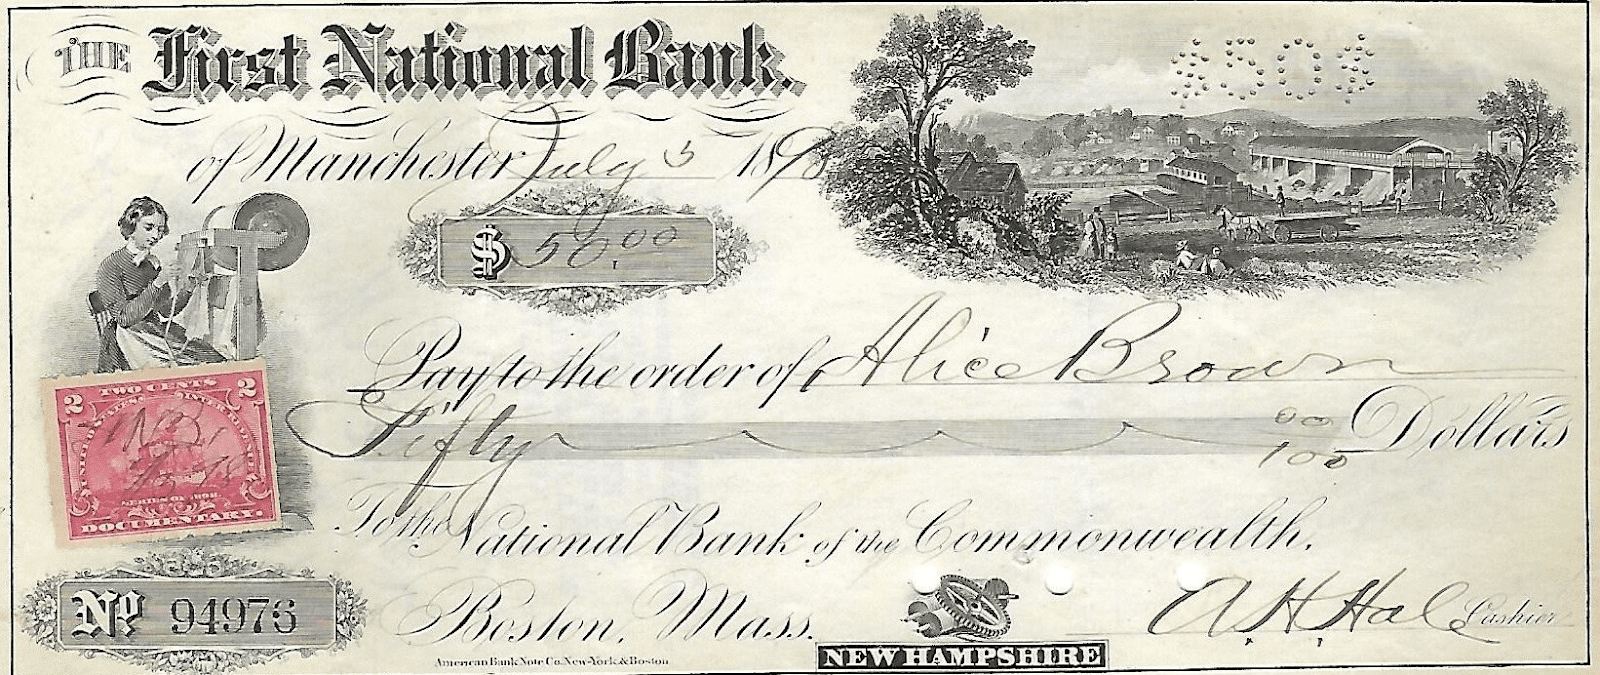 THE First National Bank.
$50$
of Manchester July 5 1898
$ 50.00
Pay to the order of Alice Brown
Fifty 00/100 Dollars
2 TWO CENTS 2
UNITED STATES INTER. REVENUE
SERIES OF 1898
2 2
DOCUMENTARY.
To the National Bank of the Commonwealth.
No. 94976
Boston, Mass.
A H Hale Cashier
American Bank Note Co. New-York & Boston
NEW HAMPSHIRE